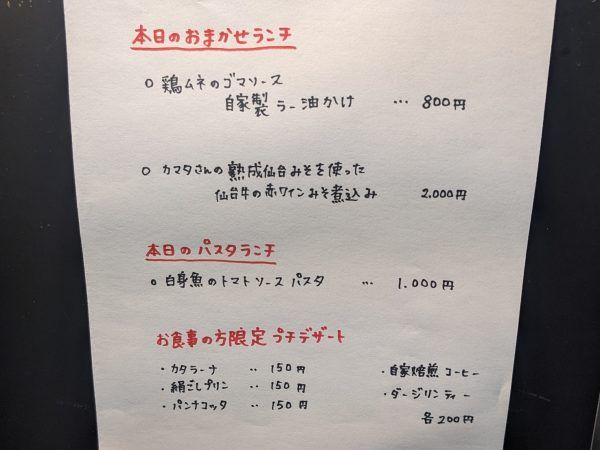 本日のおまかせランチ
○ 鶏ムネのゴマソース
自家製ラー油かけ … 800円
○ カマタさんの熟成仙台みそを使った
仙台牛の赤ワインみそ煮込み 2.000円
本日のパスタランチ
○ 白身魚のトマトソースパスタ … 1.000円
お食事の方限定プチデザート
・カタラーナ ‥ 150円
・絹ごしプリン ‥ 150円
・パンナコッタ ‥ 150円
・自家焙煎コーヒー
・ダージリンティー
各200円